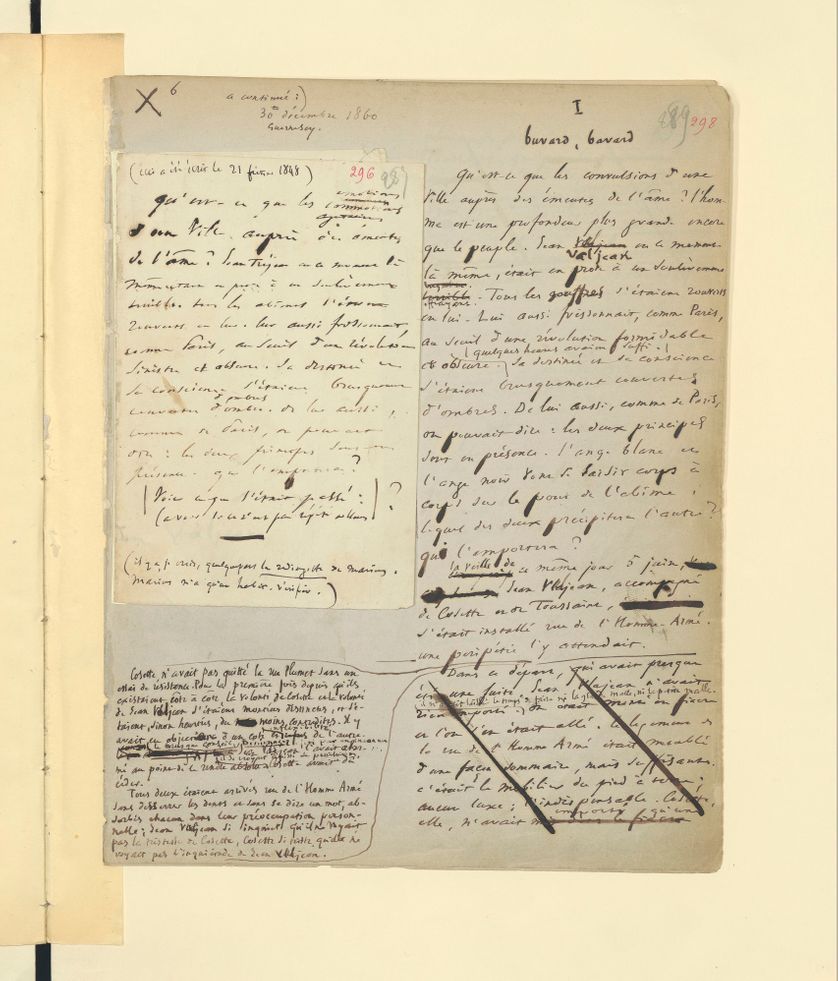 X 6
a continué :)
30 décembre 1860
Guernesey.
I
buvard, bavard
298
(ceci a été écrit le 21 février 1848)
296
qu'est-ce que les
émotions
commotions
d'une Ville auprès des émeutes
de l'âme ? Jean Tréjean en ce moment là
momentané en proie à un soulèvement
terrible. tous les abîmes s'étaient
rouverts en lui. lui aussi frissonnait,
comme Paris, au seuil d'une révolution
sinistre et obscure. Sa destinée et
sa conscience s'étaient brusquement
couvertes d'ombre. de lui aussi,
comme de Paris, on pouvait
dire : les deux principes sont en
présence. qui l'emportera ?
Voici ce que s'était passé :) ?
(il y a, je crois, quelque part la redingote de Marius.
Marius n'a qu'un habit. Vérifier.)
Qu'est-ce que les convulsions d'une
ville auprès des émeutes de l'âme ? l'hom-
me est une profondeur plus grande encore
que le peuple. Jean Valjean en ce moment
là même, était en proie à un soulèvement
effrayant. Tous les gouffres s'étaient rouverts
en lui. Lui aussi frissonnait, comme Paris,
au seuil d'une révolution formidable
et obscure. (quelques heures avaient suffi.) Sa destinée et sa conscience
s'étaient brusquement couvertes
d'ombres. De lui aussi, comme de Paris,
on pouvait dire : les deux principes
sont en présence. l'ange blanc et
l'ange noir vont se saisir corps à
corps sur le pont de l'abîme.
lequel des deux précipitera l'autre ?
qui l'emportera ?
la veille de ce même jour 5 juin,
Jean Valjean, accompagné
de Cosette et de Toussaint,
s'était installé rue de l'Homme-Armé.
une péripétie l'y attendait.
Cosette n'avait pas quitté la rue Plumet sans un
essai de résistance. Pour la première fois depuis qu'ils
existaient côte à côte, la volonté de Cosette et la volonté
de Jean Valjean s'étaient montrées distinctes, et s'é-
taient, sinon heurtées, du moins contredites. Il y
avait eu objection d'un côté et inflexibilité de l'autre.
mé au point de le rendre absolu. Cosette avait dû
céder.
Tous deux étaient arrivés rue de l'Homme Armé
sans desserrer les dents et sans se dire un mot, ab-
sorbés chacun dans leur préoccupation person-
nelle ; Jean Valjean si inquiet qu'il ne voyait
pas la tristesse de Cosette, Cosette si triste qu'elle ne
voyait pas l'inquiétude de Jean Valjean.
Dans ce départ, qui avait presque
été une fuite, Jean Valjean n'avait
rien emporté.
et l'on s'en était allé. le logement de
la rue de l'Homme Armé était meublé
d'une façon sommaire, mais suffisante.
c'était le mobilier du pied à terre ;
aucun luxe ; l'indispensable. Cosette,
elle, n'avait emporté qu'une